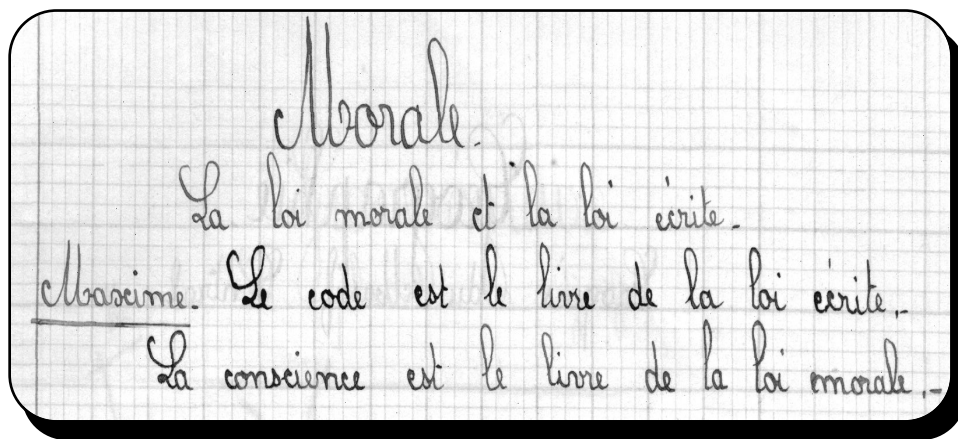 Morale.
La loi morale et la loi écrite.
Maxime. Le code est le livre de la loi écrite.
La conscience est le livre de la loi morale.